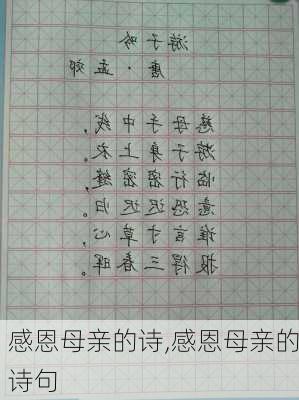 游子吟
唐·孟郊
慈母手中线，
游子身上衣。
临行密密缝，
意恐迟迟归。
谁言寸草心，
报得三春晖。
感恩母亲的诗,感恩母亲的
诗句